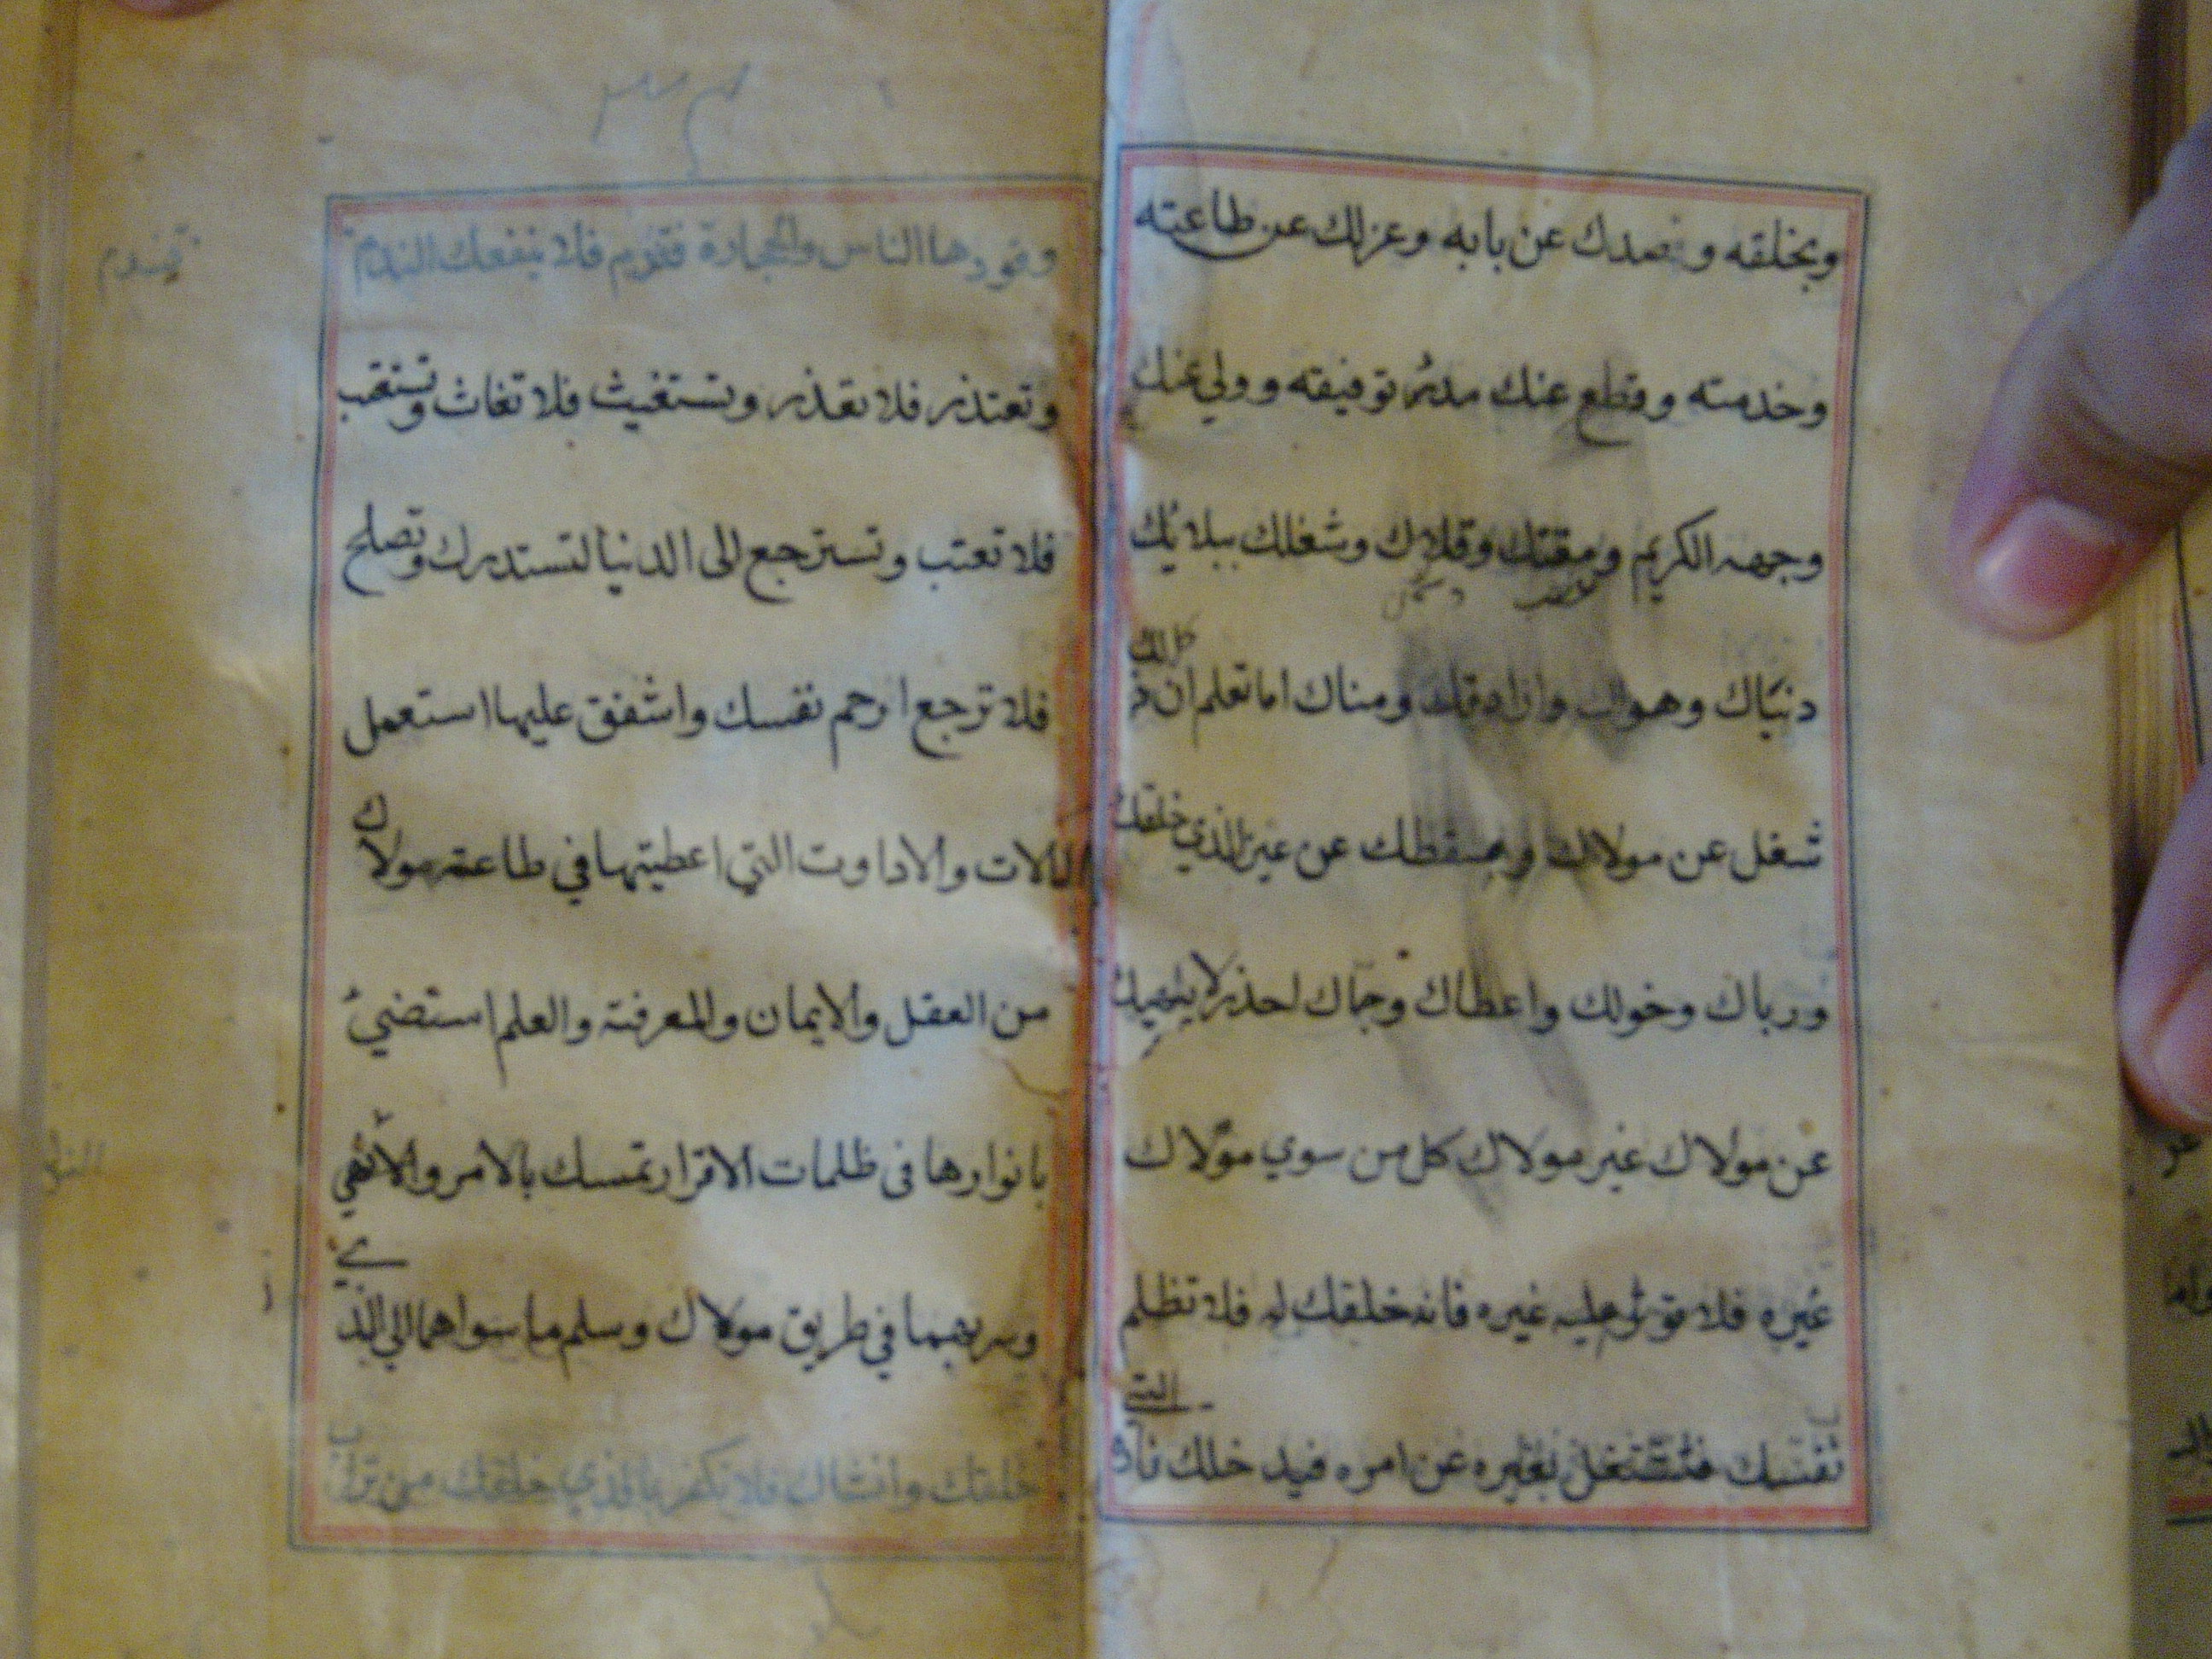 وبخلقه وصدك عن بابه وعزلك عن طاعته
وخدمته وقطع عنك مدد توفيقه وولي عنك
وجهه الكريم ومقتك وقلاك وشغلك ببلائك
دنياك وهواك وارادتك ومناك اما تعلم ان كل ذلك
شغل عن مولاك ويسقطك عن عين الذي خلقك
ورباك وخولك واعطاك وحباك احذر لا يلهيك
عن مولاك غير مولاك كل من سوي مولاك
غيره فلا تؤثر عليه غيره فانه خلقك له فلا تظلم
نفسك فتشتغل بغيره عن امره فيدخلك النار التي
وقودها الناس والحجارة فتندم فلا ينفعك الندم
وتعتذر فلا تعذر وتستغيث فلا تغاث وتستعتب
فلا تعتب وتسترجع الى الدنيا لتستدرك وتصلح
فلا ترجع ارحم نفسك واشفق عليها استعمل
الالات والادوات التي اعطيتها في طاعته مولاك
من العقل والايمان والمعرفة والعلم استضيئ
بانوارها في ظلمات الاقرار تمسك بالامر والنهي
وسر بهما في طريق مولاك وسلم ما سواهما الي الذي
خلقك وانشاك فلا تكفر بالذي خلقك من تراب